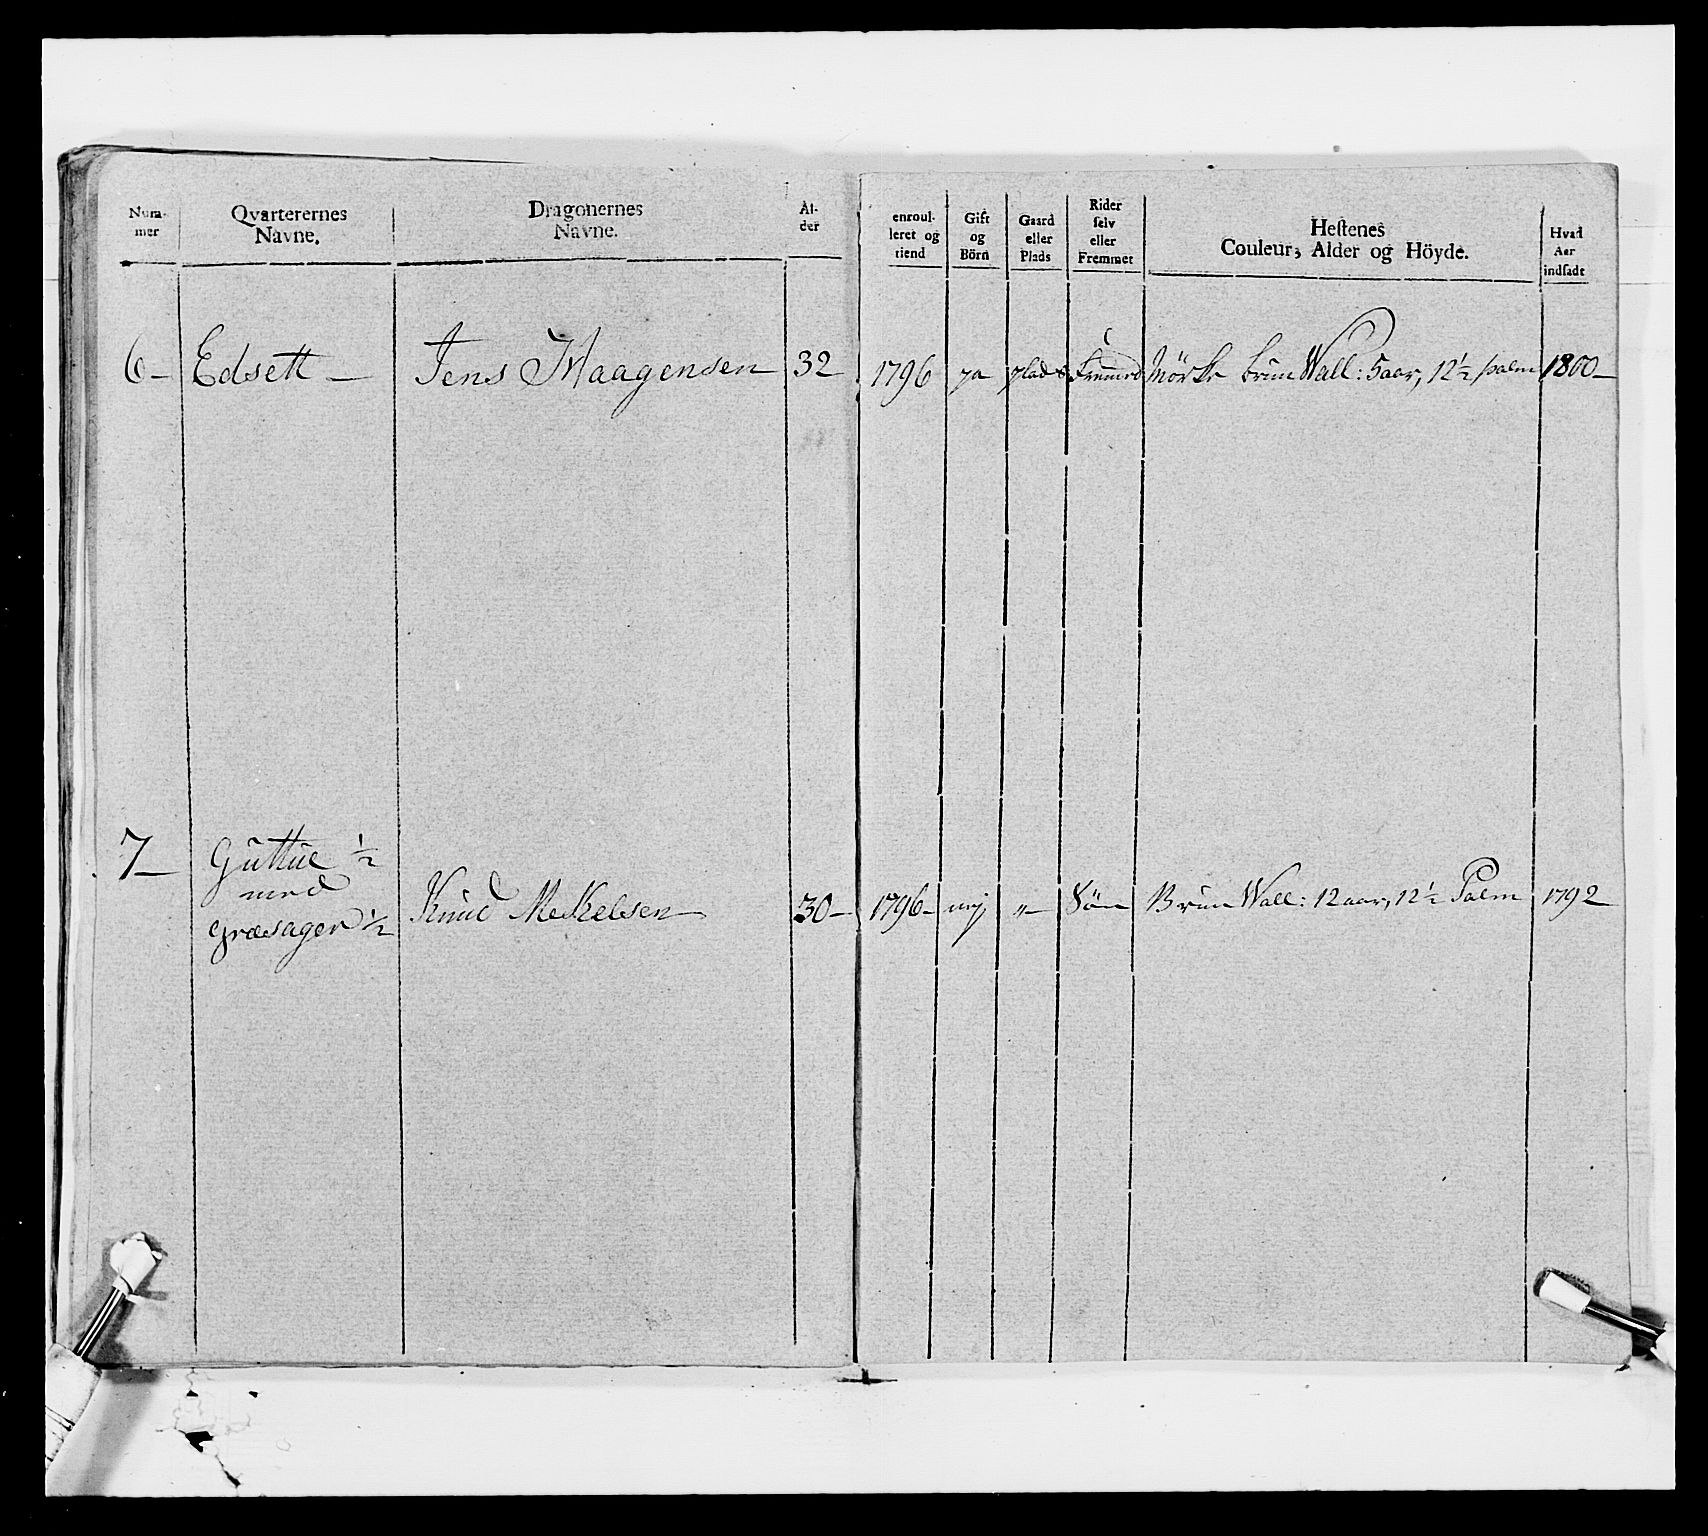 Num-
mer
Qvarterernes
Navne.
Dragonernes
Navne.
Al-
der
enroul-
leret og
tiend
Gift
og
Börn
Gaard
eller
Plads
Rider
selv
eller
Fremmet
Hestenes
Couleur, Alder og Höyde.
Hvad
Aar
indsadt
6 — Edsett — Jens Maagensen 32 1796 ja plads fremmed Mörk brun Wall: 5 aar, 12 1/2 palm 1800 —
7 — Guttue 1/2
med
Græsager 1/2 Knud Mekelsen — 30 — 1796 — nej „ — Sön Brun Wall: 12 aar, 12 1/2 Palm 1792